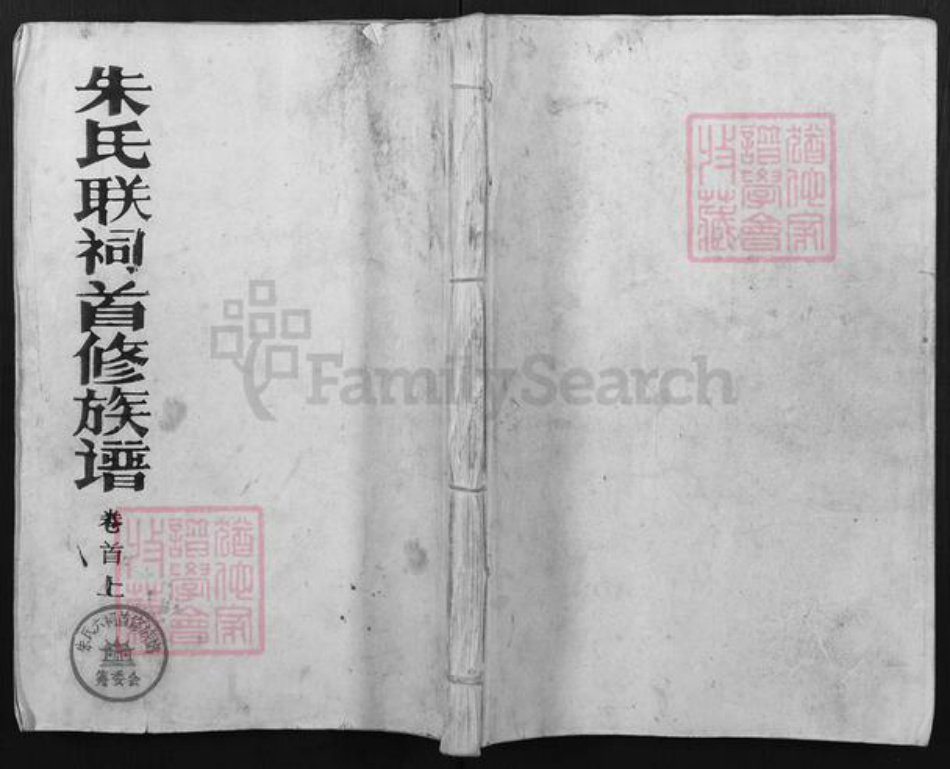 朱氏联祠首修族谱
卷首上
朱氏六祠首修族谱
筹委会
猶他家
譜學會
特藏
猶他家
譜學會
特藏
FamilySearch